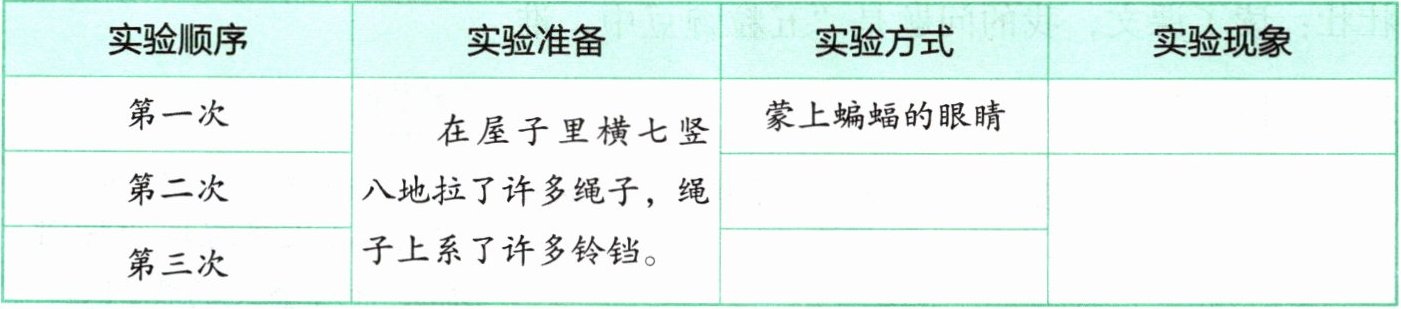 实验顺序 实验准备 实验方式 实验现象
第一次 蒙上蝙蝠的眼睛
在屋子里横七竖
第二次 八地拉了许多绳子，绳
子上系了许多铃铛。
第三次